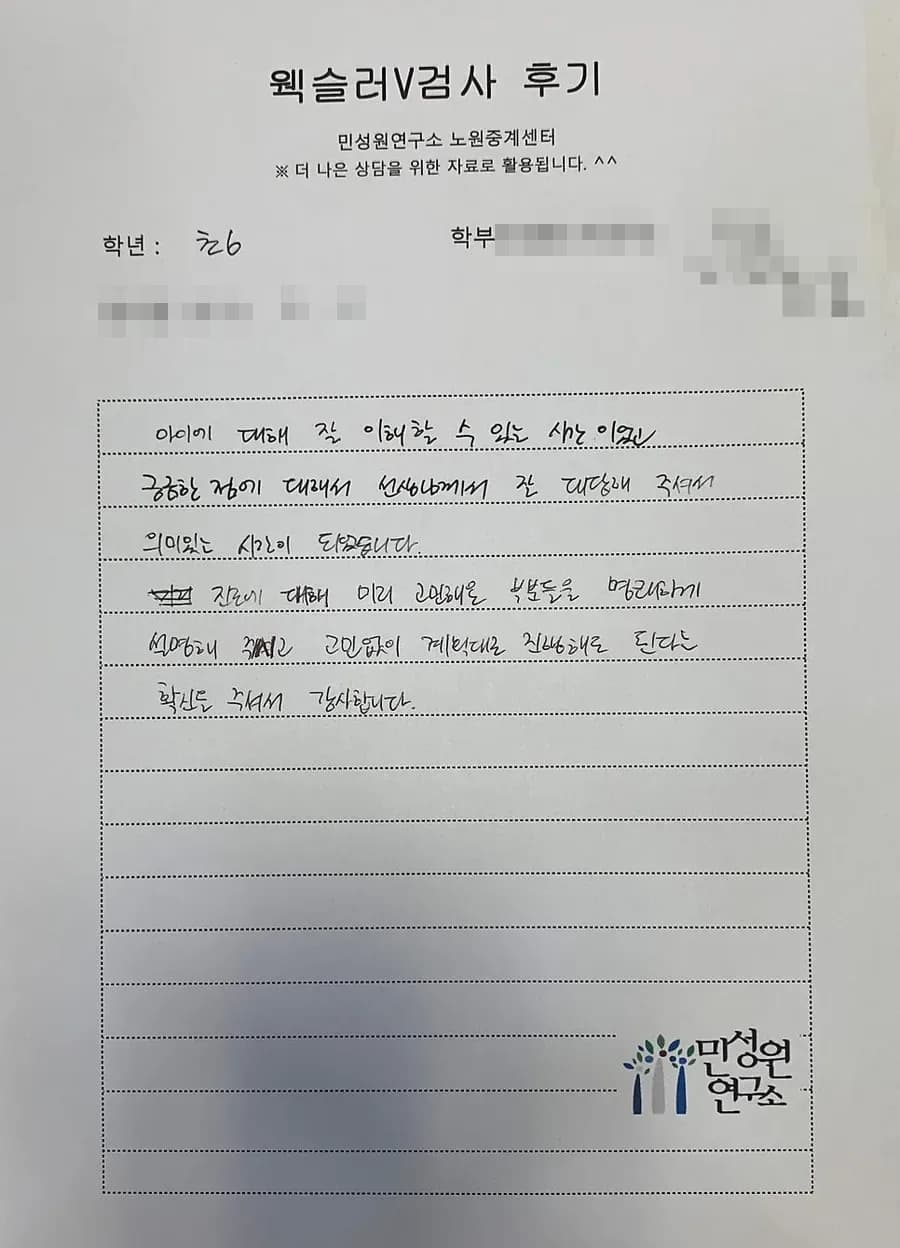 웩슬러V검사 후기
민성원연구소 노원중계센터
※ 더 나은 상담을 위한 자료로 활용됩니다. ^^
학년 : 초6 학부
아이에 대해 잘 이해할 수 있는 시간이었고
궁금한 점에 대해서 선생님께서 잘 대답해 주셔서
의미있는 시간이 되었습니다.
진로에 대해 미리 고민해올 부분들을 명쾌하게
설명해 주시고 고민없이 계획대로 진행해도 된다는
확신을 주셔서 감사합니다.
민성원
연구소